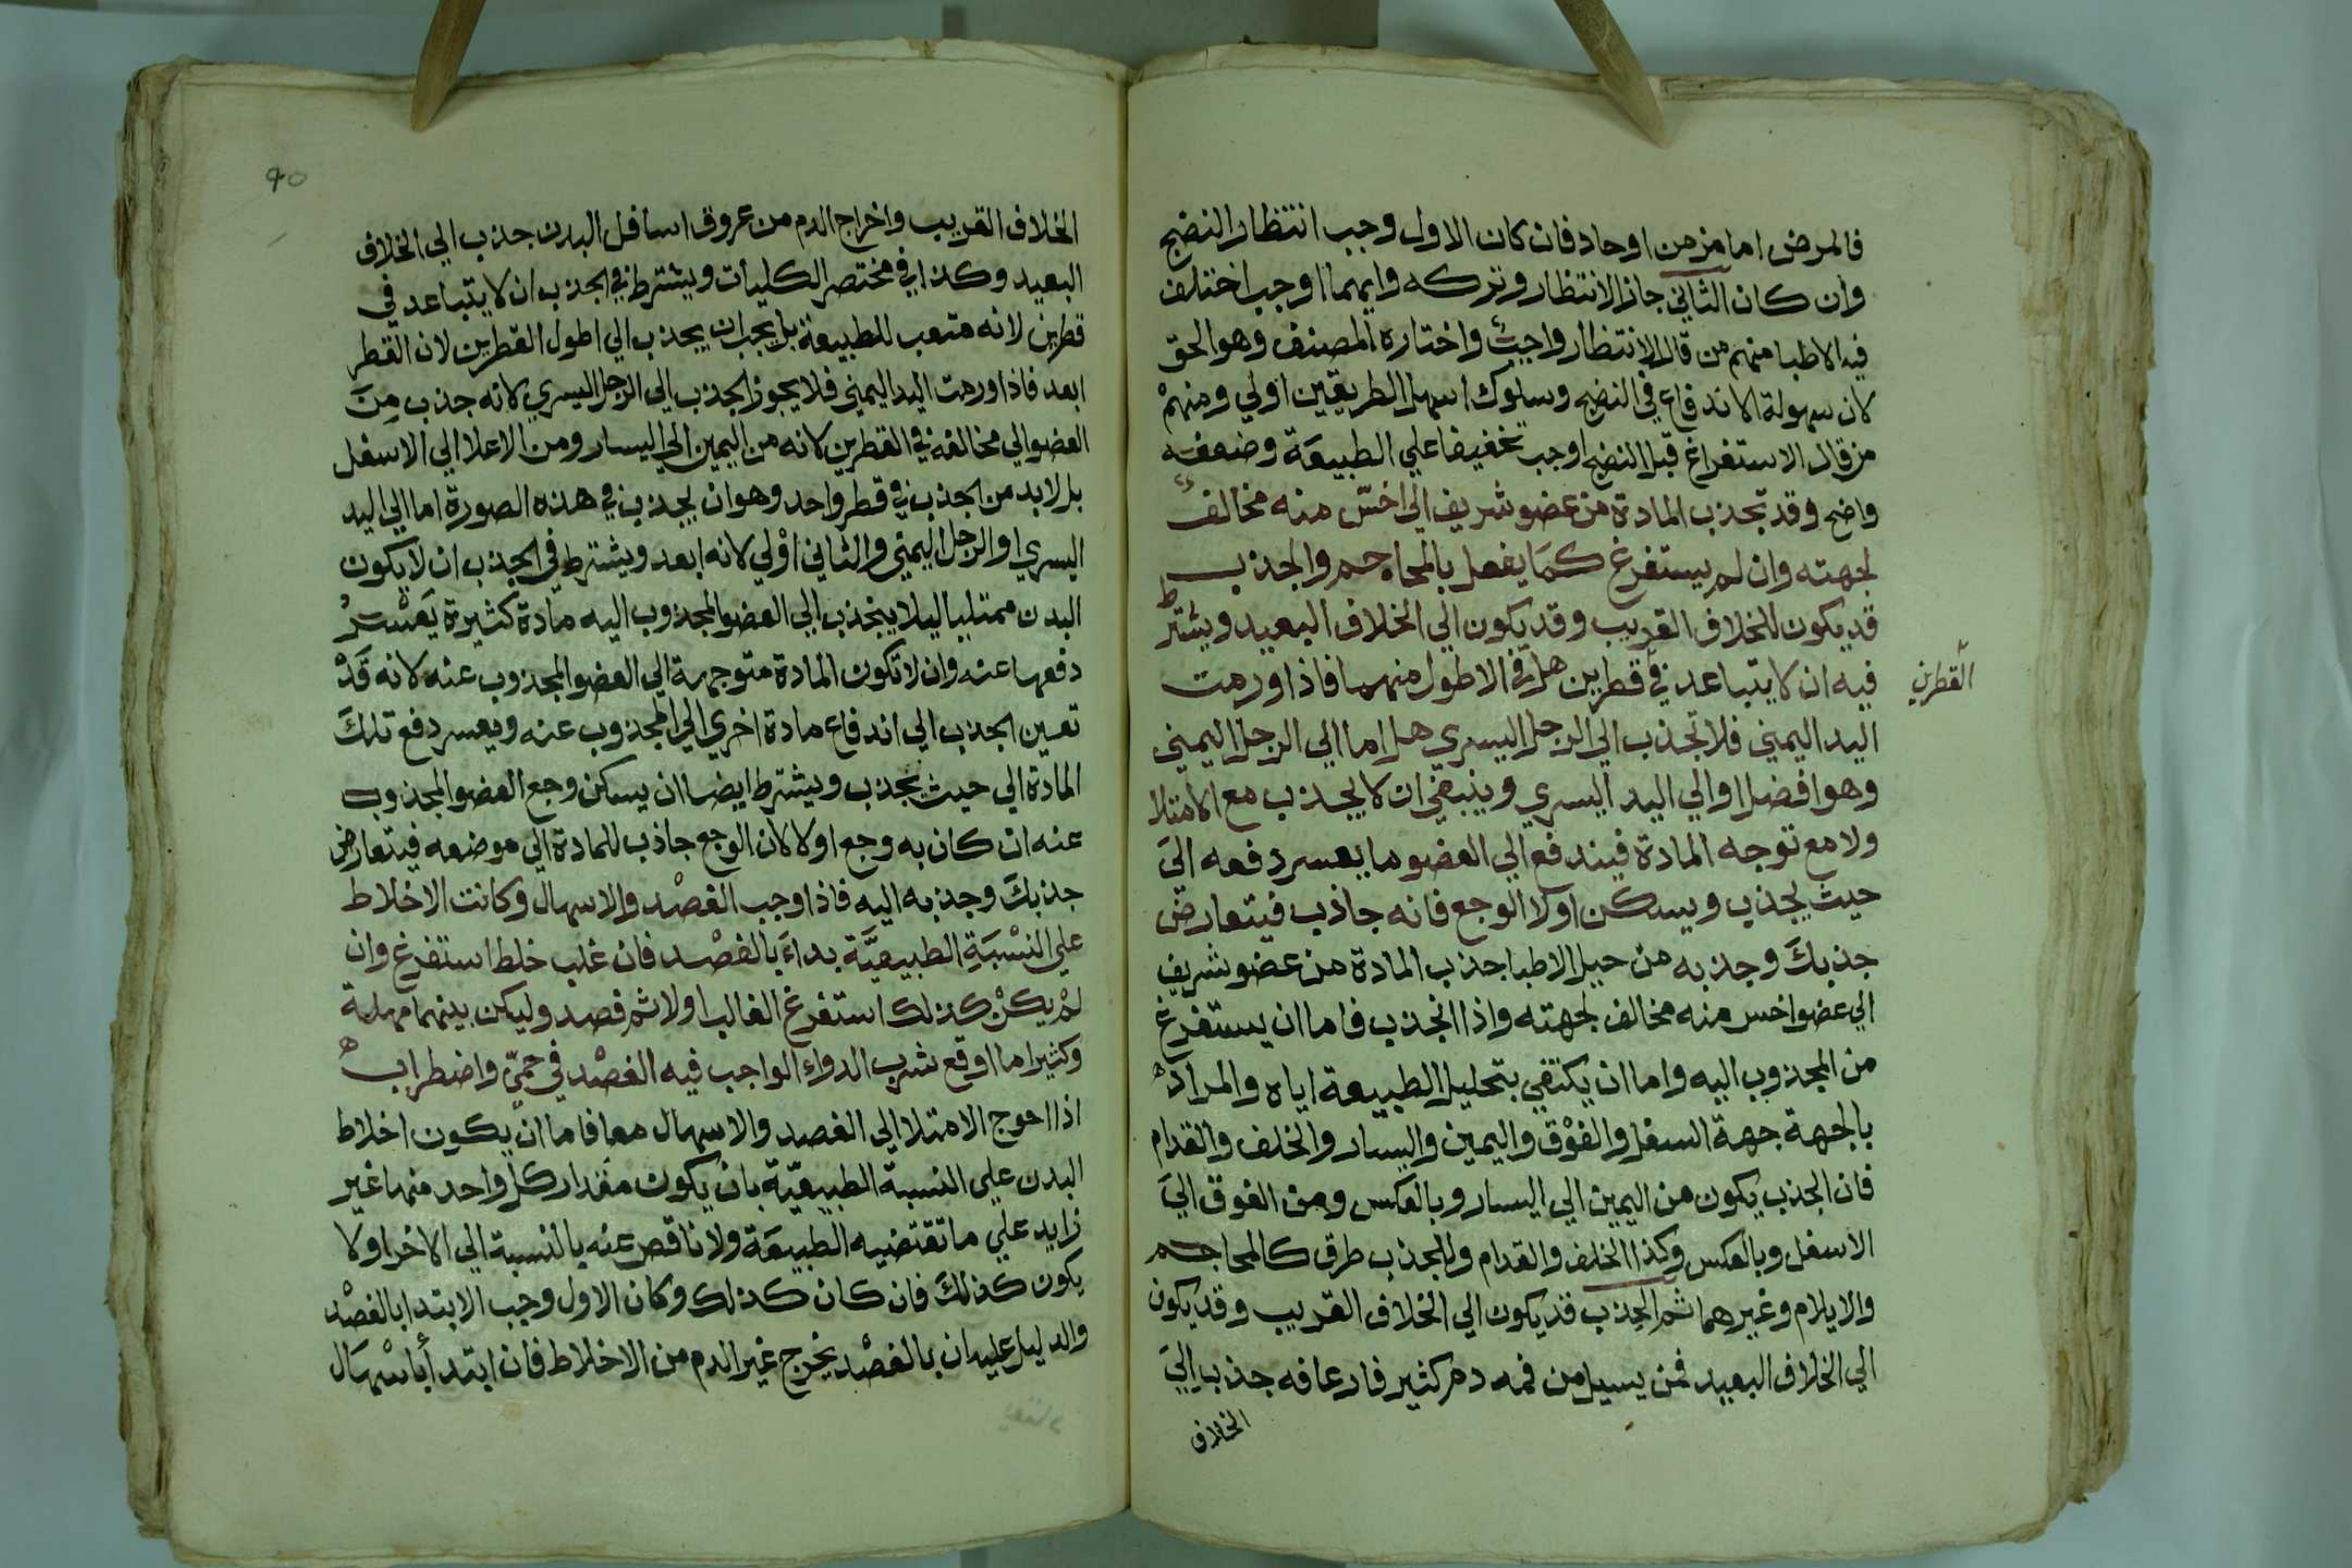 فالمرض اما مزمن او حاد فان كان الاول وجب انتظار النضج
وان كان الثاني جاز الانتظار وتركه وايهما اوجب اختلف
فيه الاطبا منهم من قال الانتظار واجب واختاره المصنف وهو الحق
لان سهولة الاندفاع في النضج وسلوك اسهل الطريقين اولي ومنهم
من قال الاستفراغ قبل النضج اوجب تخفيفا علي الطبيعة وضعفه
واضح وقد تجذب المادة من عضو شريف الي اخس منه مخالف
لجهته وان لم يستفرغ كما يفعل بالمحاجم والجذب
قد يكون للخلاف القريب وقد يكون الي الخلاف البعيد ويشترط
فيه ان لا يتباعد في قطرين بل في الاطول منهما فاذا ورمت
القطرين
اليد اليمني فلا تجذب الي الرجل اليسري بل اما الي الرجل اليمني
وهو افضل او الي اليد اليسري وينبغي ان لا يجذب مع الامتلا
ولا مع توجه المادة فيندفع الي العضو ما يعسر دفعه الي
حيث يجذب ويسكن اولا الوجع فانه جاذب فيتعارض
جذبك وجذبه من حيل الاطبا جذب المادة من عضو شريف
الي عضو اخس منه مخالف لجهته واذا انجذب فاما ان يستفرغ
من المجذوب اليه واما ان يكتفي بتحليل الطبيعة اياه والمراد
بالجهة جهة السفل والفوق واليمين واليسار والخلف والقدام
فان الجذب يكون من اليمين الي اليسار وبالعكس ومن الفوق الي
الاسفل وبالعكس وكذا الخلف والقدام وللجذب طرق كالمحاجم
والايلام وغيرهما ثم الجذب قد يكون الي الخلاف القريب وقد يكون
الي الخلاف البعيد فمن يسيل من فمه دم كثير فارعافه جذب الي
الخلاف
٩٥
الخلاف القريب واخراج الدم من عروق اسافل البدن جذب الي الخلاف
البعيد وكذا في مختصر الكليات ويشترط في الجذب ان لا يتباعد في
قطرين لانه متعب للطبيعة بل يجب ان يجذب الي اطول القطرين لان القطر
ابعد فاذا ورمت اليد اليمني فلا يجوز الجذب الي الرجل اليسري لانه جذب من
العضو الي مخالفه في القطرين لانه من اليمين الي اليسار ومن الاعلا الي الاسفل
بل لا بد من الجذب في قطر واحد وهو ان يجذب في هذه الصورة اما الي اليد
اليسري او الرجل اليمني والثاني اولي لانه ابعد ويشترط في الجذب ان لا يكون
البدن ممتليا ليلا ينجذب الي العضو المجذوب اليه مادة كثيرة يعسر
دفعها عنه وان لا تكون المادة متوجهة الي العضو المجذوب عنه لانه قد
تعين الجذب الي اندفاع مادة اخري الي المجذوب عنه ويعسر دفع تلك
المادة الي حيث يجذب ويشترط ايضا ان يسكن وجع العضو المجذوب
عنه ان كان به وجع اولا لان الوجع جاذب للمادة الي موضعه فيتعارض
جذبك وجذبه اليه فاذا وجب الفصد والاسهال وكانت الاخلاط
علي النسبة الطبيعية بداء بالفصد فان غلب خلط استفرغ وان
لم يكن كذلك استفرغ الغالب اولا ثم فصد وليكن بينهما مهلة
وكثيرا ما اوقع شرب الدواء الواجب فيه الفصد في حمي واضطراب
اذا احوج الامتلا الي الفصد والاسهال معا فاما ان يكون اخلاط
البدن علي النسبة الطبيعية بان يكون مقدار كل واحد منها غير
زايد علي ما تقتضيه الطبيعة ولا ناقص عنه بالنسبة الي الاخر او لا
يكون كذلك فان كان كذلك وكان الاول وجب الابتدا بالفصد
والدليل عليه ان بالفصد يخرج غير الدم من الاخلاط فان ابتدأ باسهال